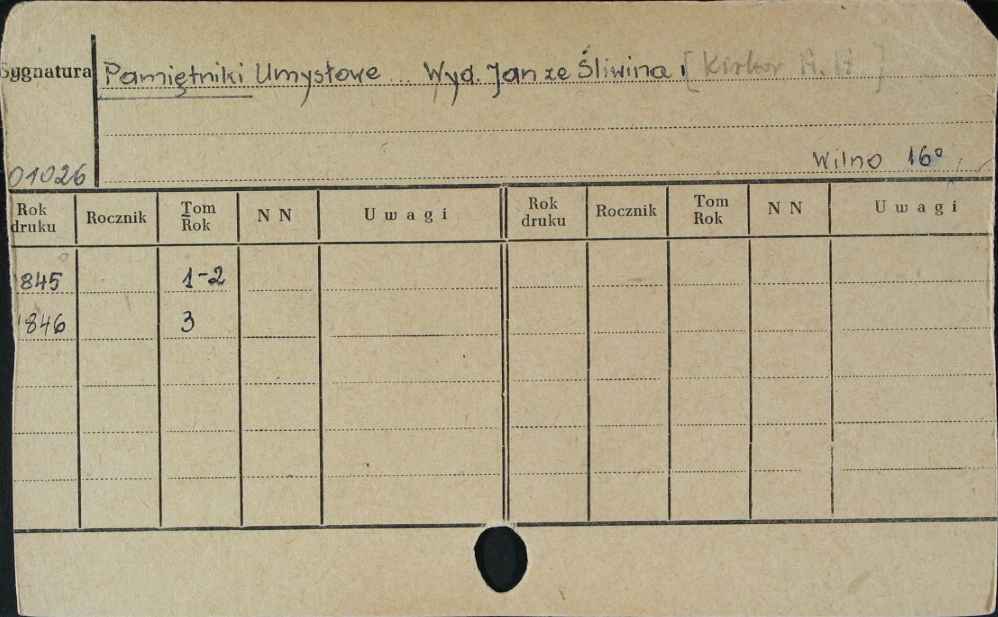 Sygnatura Pamiętniki Umysłowe... Wyd. Jan ze Śliwina, [Kirkor A. H.]
Wilno 16°
01026
Rok druku Rocznik Tom Rok N N Uwagi Rok druku Rocznik Tom Rok N N Uwagi
1845 1-2
1846 3